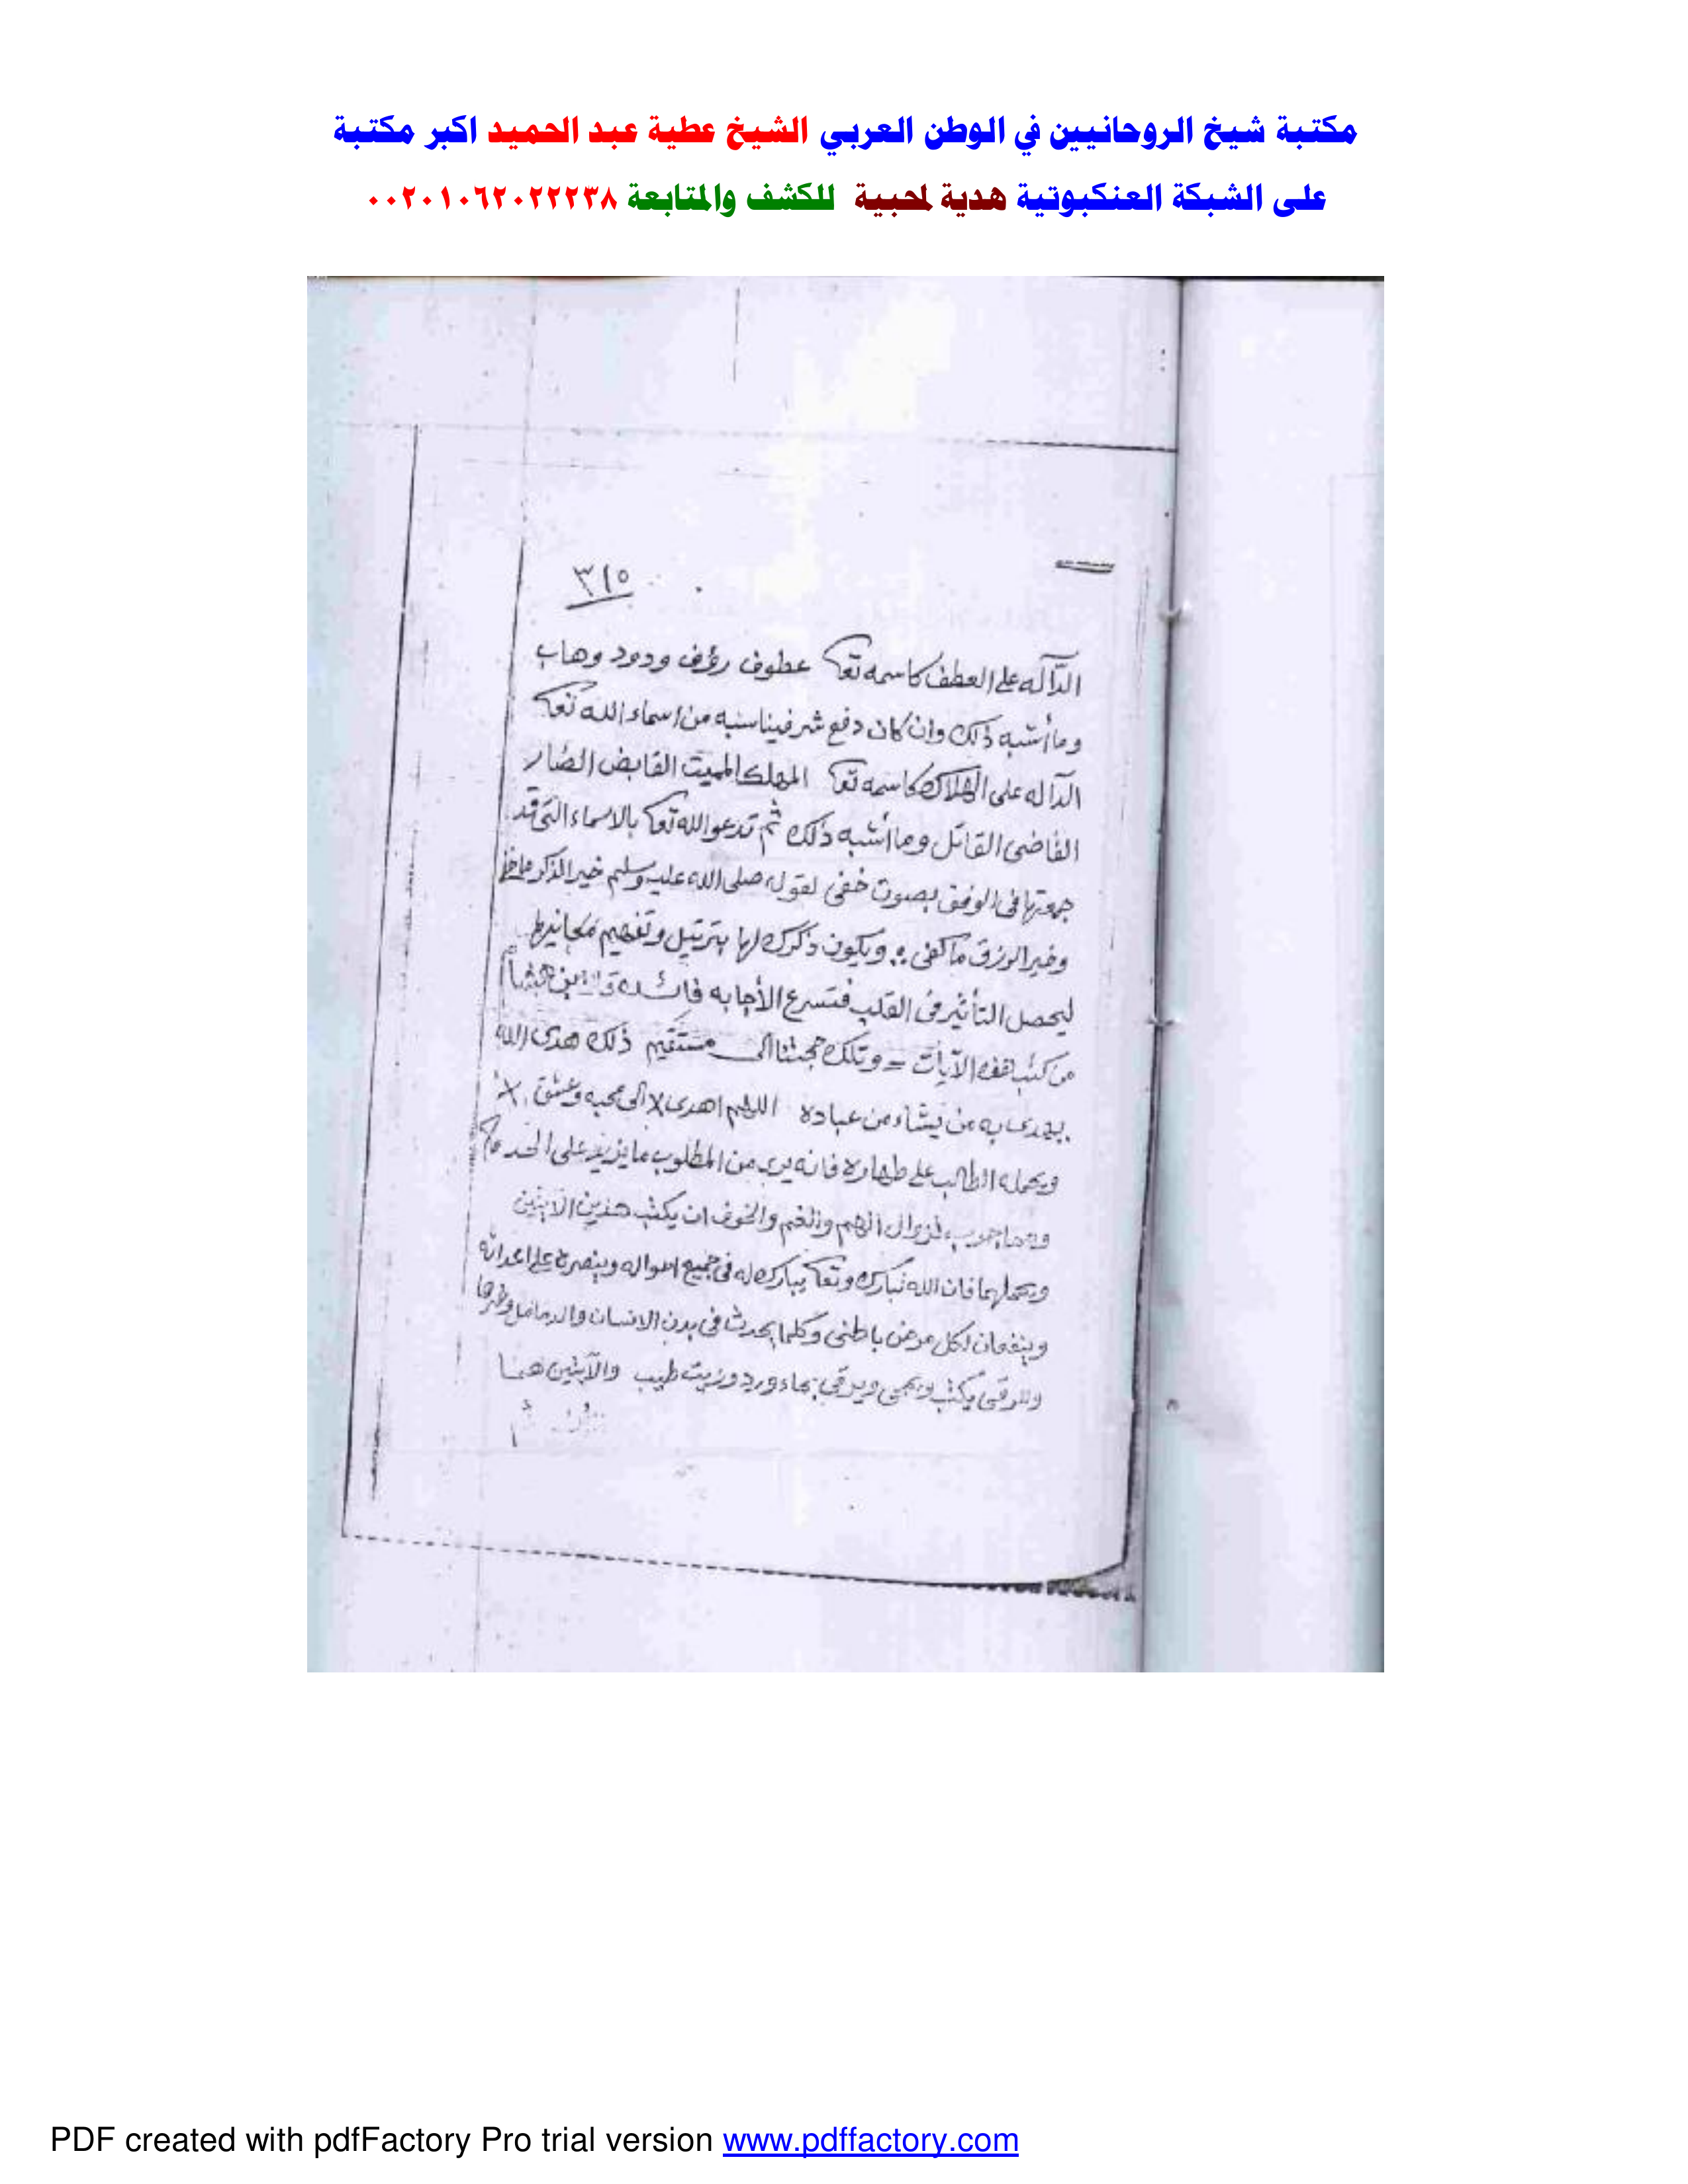 مكتبة شيخ الروحانيين في الوطن العربي الشيخ عطية عبد الحميد اكبر مكتبة
على الشبكة العنكبوتية هدية لمحبية للكشف والمتابعة ٠٠٢٠١٠٦٢٠٢٢٢٣٨
٣١٥
الدآله على العطف كاسمه تعا عطوف رؤف ودود وهاب
وما أشبه ذلك وان كان دفع شر فيناسبه من اسماء الله تعا
الدآله على الهلاك كاسمه تعا المهلك المميت القابض الضار
القاضى القاتل وما أشبه ذلك ثم تدعو الله تعا بالاسماء التى قد
جمعتها فى الوفق بصوت خفى لقوله صلى الله عليه وسلم خير الذكر ما خفا
وخير الرزق ما كفى ويكون ذكرك لها بترتيل وتفهيم
ليحصل التأثير فى القلب فتسرع الأجابه فائده
من كتب هذه الآيات وتلك حجتنا الى مستقيم ذلك هدى الله
يهدى به من يشاء من عباده اللهم اهدى الى محبه وعشق
ويحمله الطالب على طهاره فانه يرى من المطلوب ما يزيد على الحد
ومما جرب لزوال الهم والغم والخوف ان يكتب هذين الآيتين
ويحملهما فان الله تبارك وتعا يبارك له فى جميع احواله وينصره على اعدائه
وينفعان لكل مرض باطنى وكلما يحدث فى بدن الانسان والدمامل
يكتب ويمحى ويرقى بماء ورد وزيت طيب والآيتين هما
PDF created with pdfFactory Pro trial version www.pdffactory.com